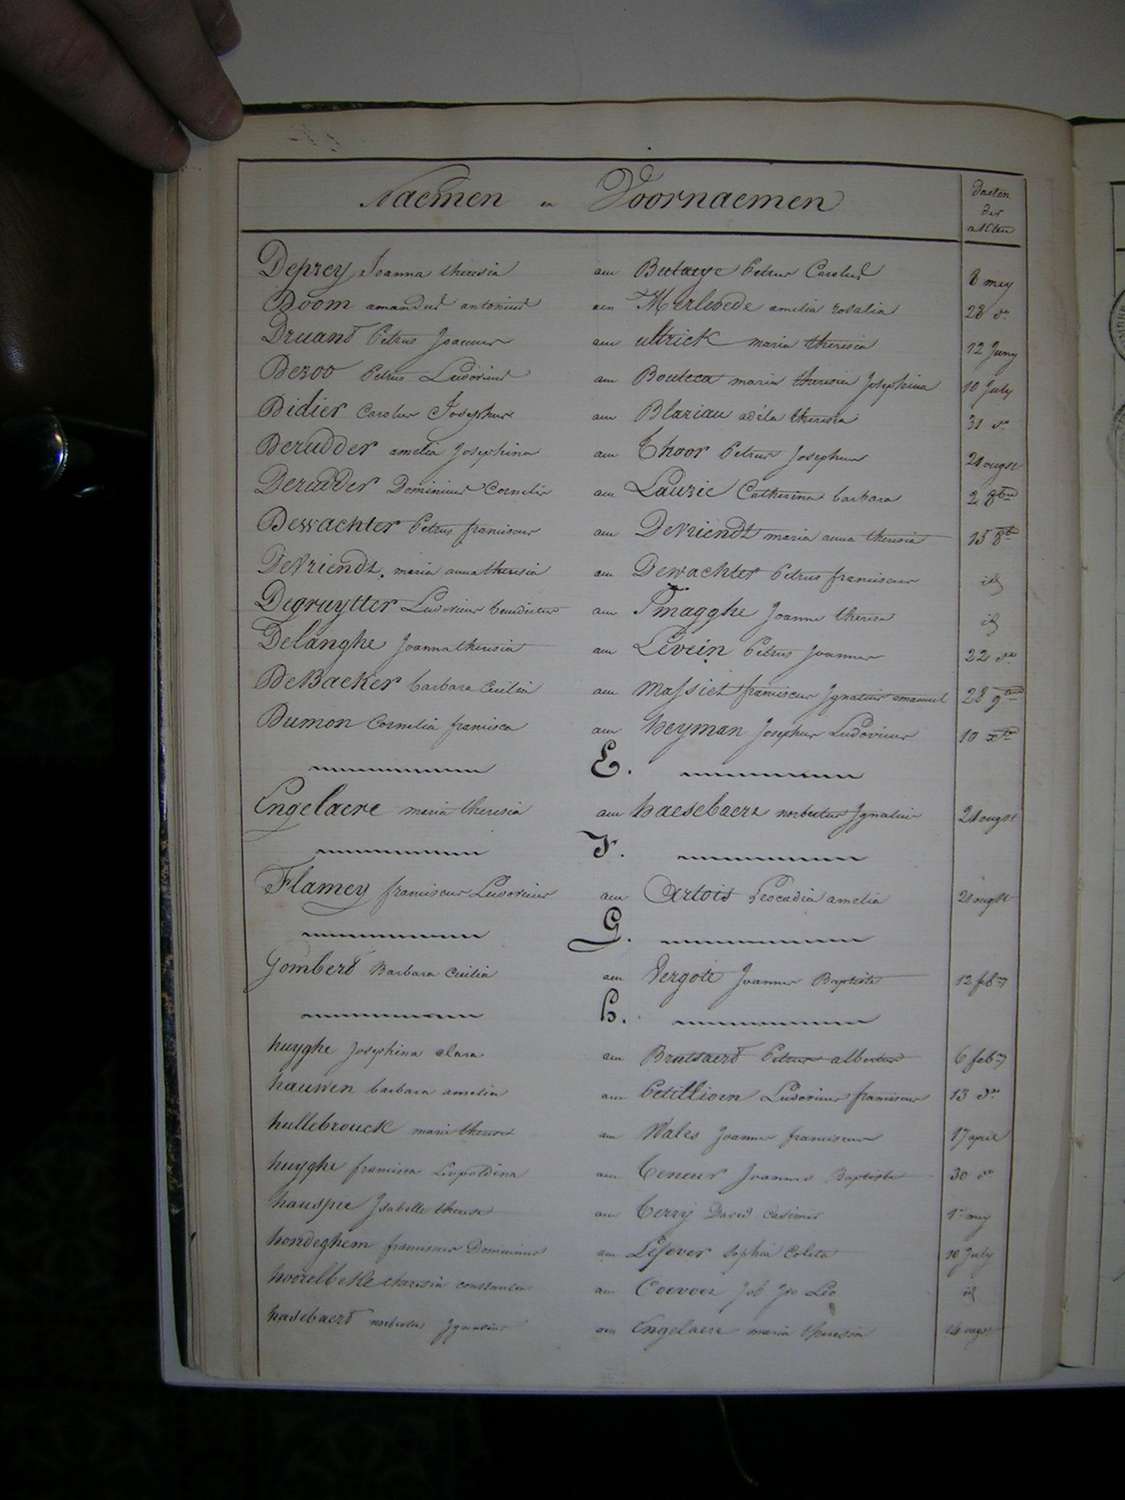 Naemen en Voornaemen
Daeten der akten
Deprey Joanna theresia aen Butaeye Petrus Carolus 8 mey
Doom amandus antonius aen Merlevede amelia rosalia 28 do
Druant Petrus Joannes aen ultrick maria theresia 12 Juny
Dezoo Petrus Ludovicus aen Bouteca maria theresia Josephina 10 July
Didier Carolus Josephus aen Blariau adéla theresia 31 do
Derudder amelia Josephina aen Thoor Petrus Josephus 21 ougst
Derudder Dominicus Cornelis aen Lauzie Catherina barbara 2 8bre
Dewachter Petrus franciscus aen DeVriendt maria anna theresia 15 8bre
DeVriendt maria anna theresia aen Dewachter Petrus franciscus id
Degruytter Ludovicus benedictus aen Tmagghe Joanna theresa id
Delanghe Joanna theresia aen Levein Petrus Joannes 22 do
DeBacker barbara Cecilia aen Massiet franciscus Ignatius emanuel 28 9bre
Dumon Cornelia francisca aen heyman Josephus Ludovicus 10 xbre
E.
Engelaere maria theresia aen haesebaert norbertus Ignatius 21 ougst
F.
Flamey franciscus Ludovicus aen Artois Leocadia amelia 21 ougst
G.
Gombert Barbara Cecilia aen Vergote Joannes Baptiste 12 febry
h.
huyghe Josephina clara aen Brutsaert Petrus albertus 6 febry
hauwen barbara amelia aen Petillioen Ludovicus franciscus 13 do
hullebrouck maria theresa aen Wales Joannes franciscus 17 april
huyghe francisca Leopoldina aen teneur Joannes Baptiste 30 do
hauspie Isabelle therese aen terry David Casimir 1 mey
hondeghem franciscus Dominicus aen Lefever Sophia Coleta 10 July
hoorelbeke theresia constantia aen Coevoet Leo id
hasebaert norbertus Ignatius aen Engelaere maria theresia ougst